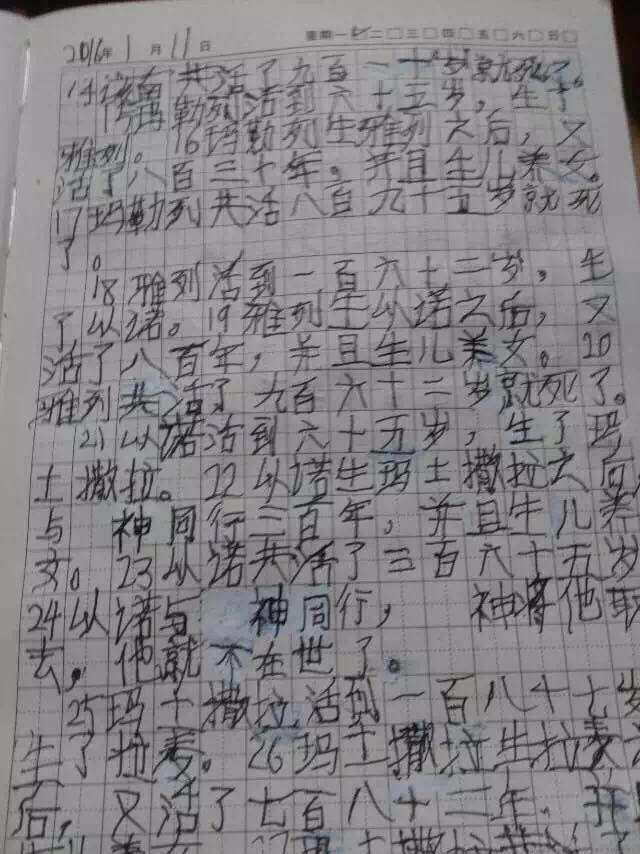 2016年1月11日 星期一 二 三 四 五 六 日
14 该南共活了九百一十岁就死了。
15 玛勒列活到六十五岁，生了
雅列。16玛勒列生雅列之后，又
活了八百三十年。并且生儿养女。
17玛勒列共活八百九十五岁就死
了。
18雅列活到一百六十二岁，生
了以诺。19雅列生以诺之后，又
活了八百年，并且生儿养女。20
雅列共活了九百六十二岁就死了。
21以诺活到六十五岁，生了玛
土撒拉。22以诺生玛土撒拉之后，
与神同行三百年，并且生儿养
女。23以诺共活了三百六十五岁
24以诺与神同行，神将他取
去，他就不在世了。
25玛土撒拉活到一百八十七岁
生了拉麦。26玛土撒拉生拉麦之
后，又活了七百八十二年，并且